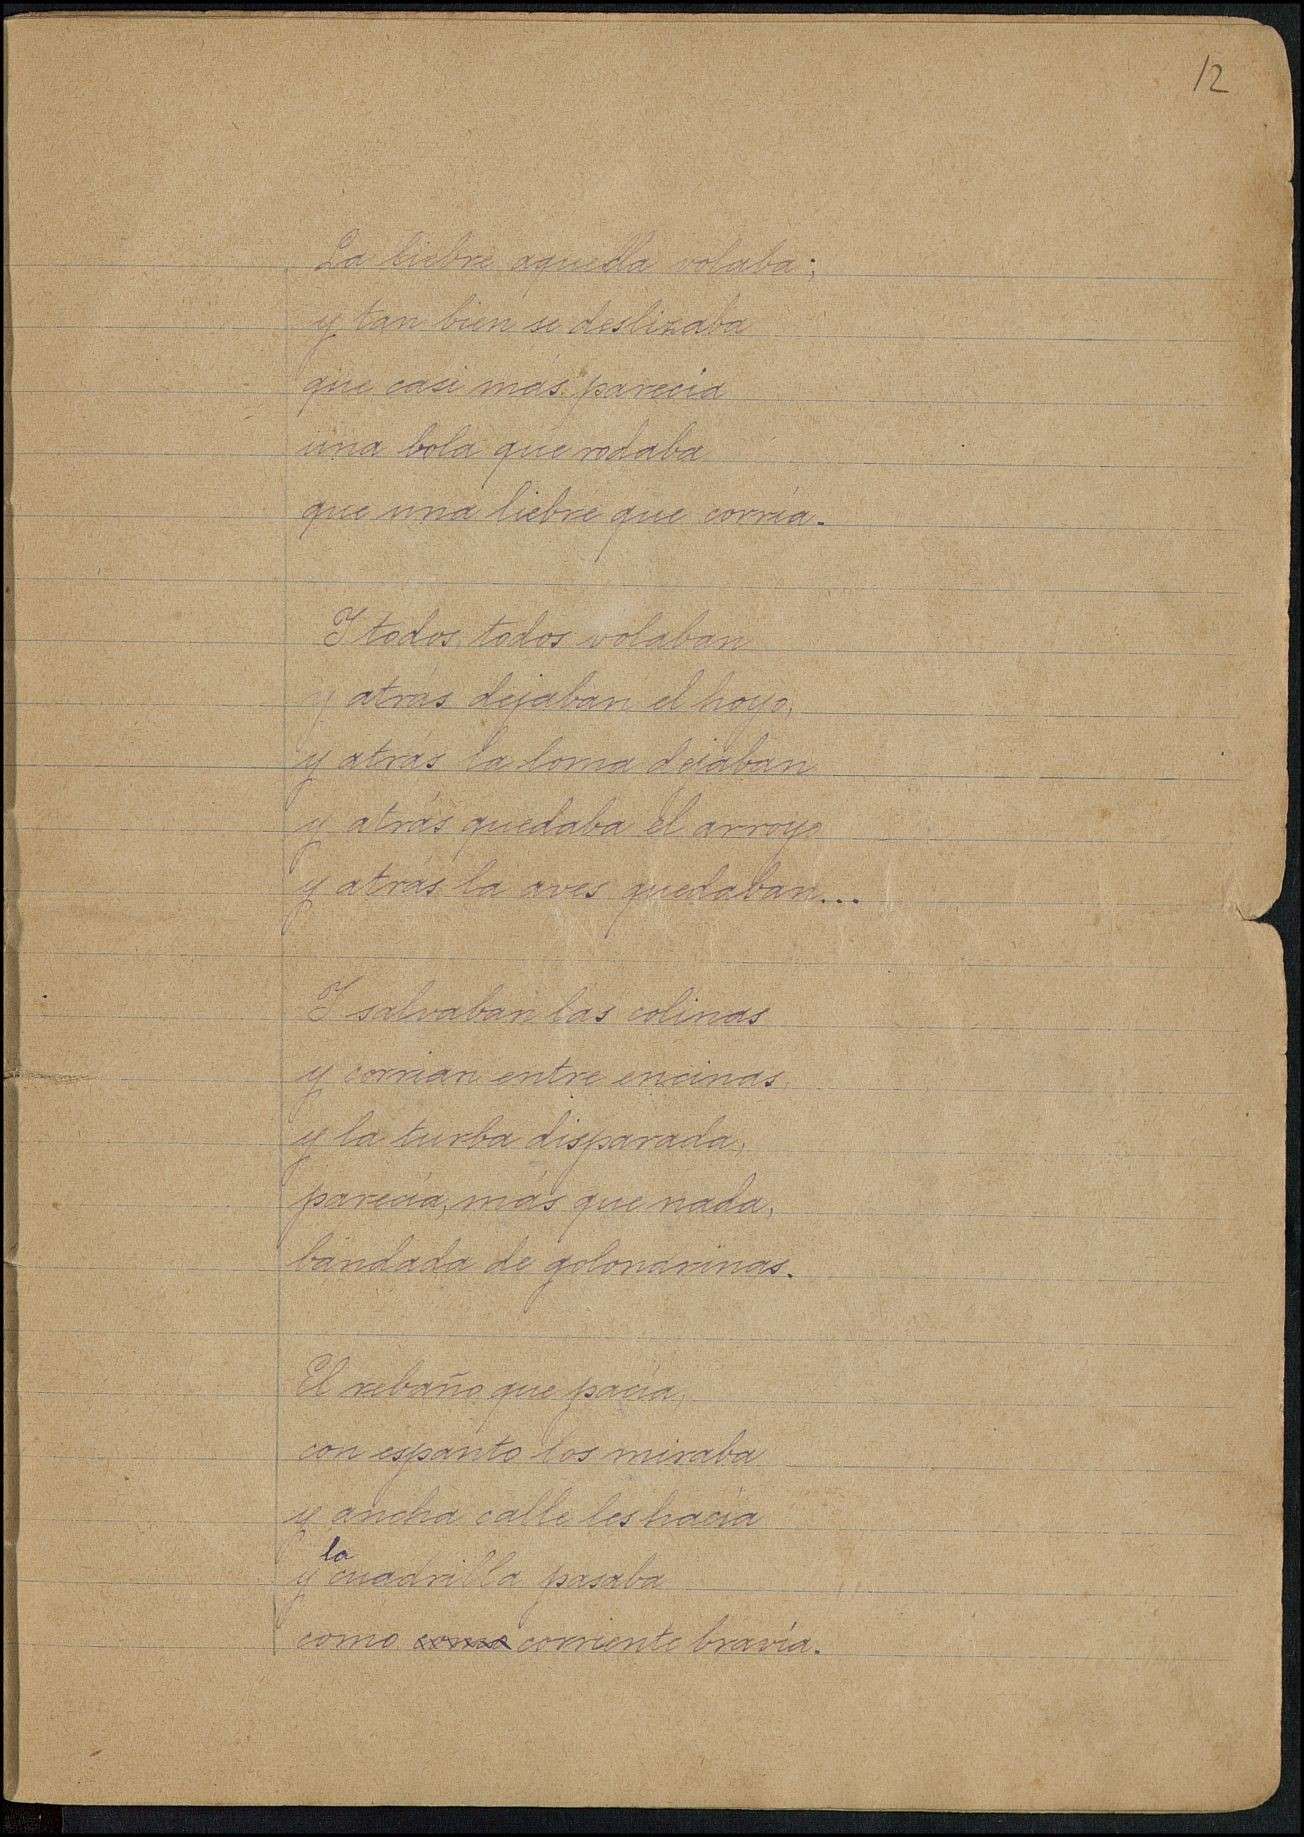 12
La liebre aquella volaba;
y tan bien se deslizaba
que casi más parecía
una bola que rodaba
que una liebre que corría.
Y todos, todos volaban
y atrás dejaban el hoyo,
y atrás la loma dejaban
y atrás quedaba el arroyo
y atrás la aves quedaban...
Y salvaban las colinas
y corrían entre encinas
y la turba disparada,
parecía, más que nada,
bandada de golondrinas.
El rebaño que pacía,
con espanto los miraba
y ancha calle les hacía
y la cuadrilla pasaba
como como corriente bravía.